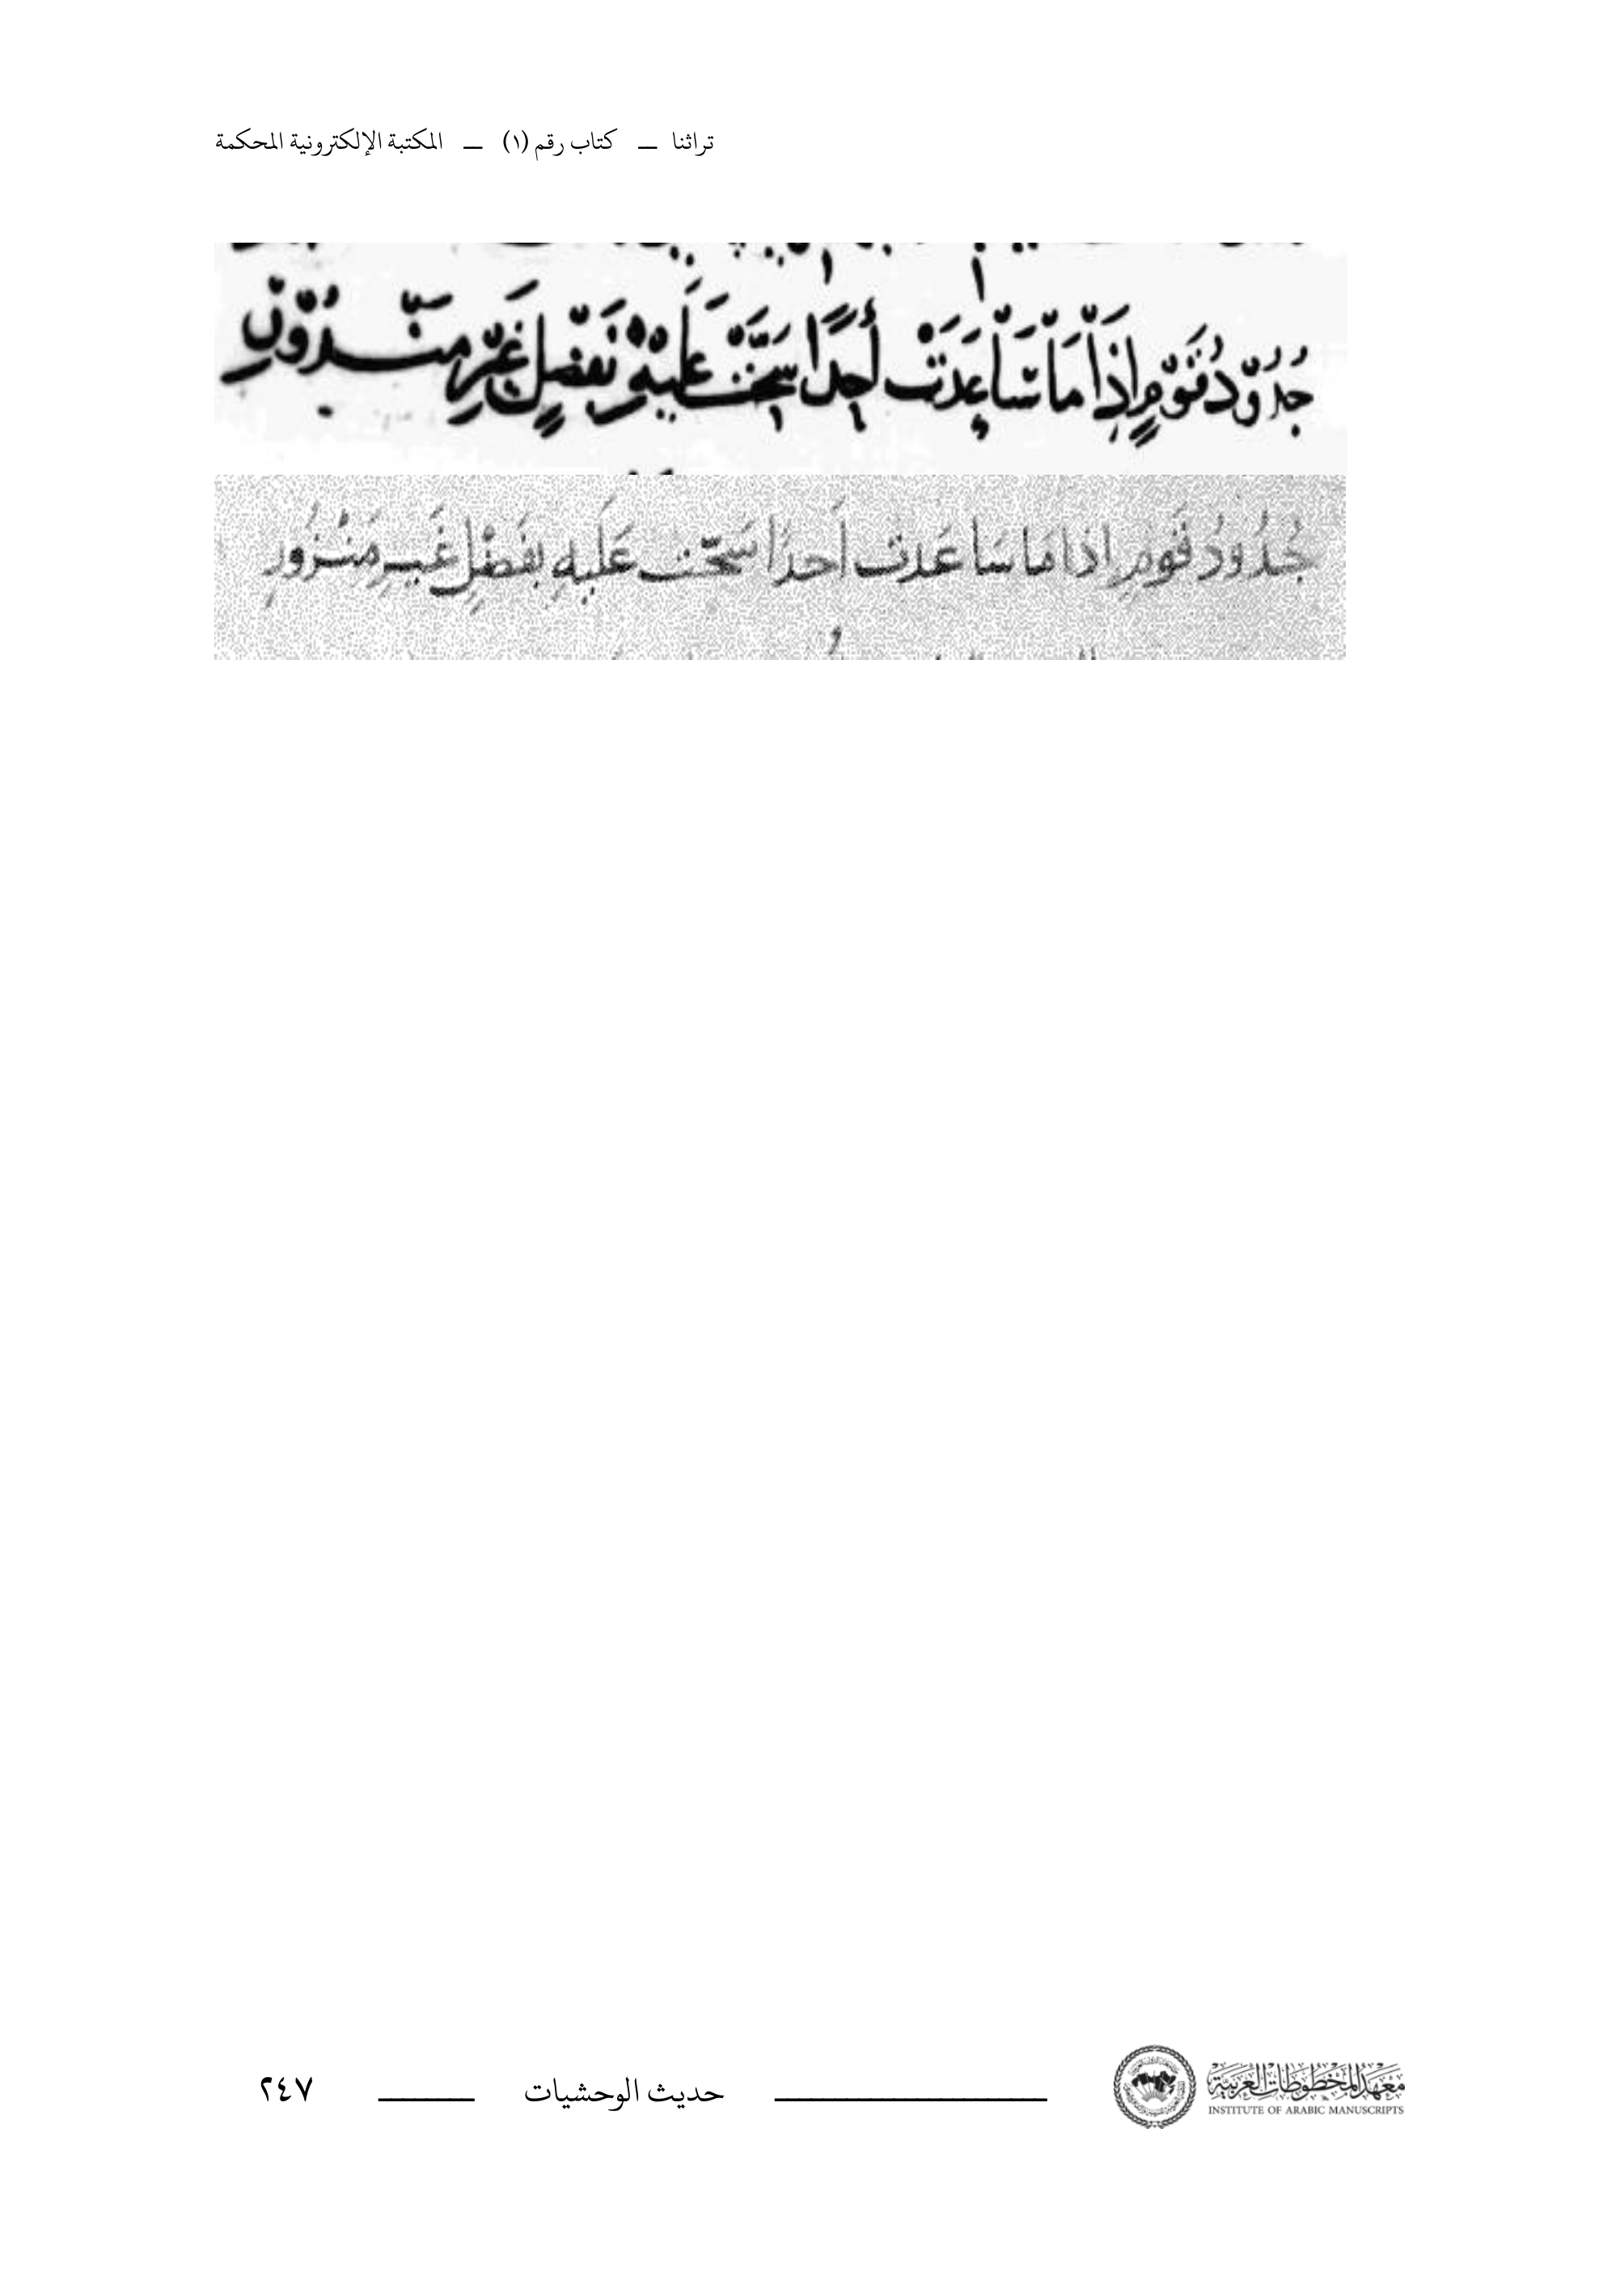 تراثنا — كتاب رقم (١) — المكتبة الإلكترونية المحكمة
جُدُوْدُ قَوْمٍ إِذَاْ مَاْ سَاْعَدَتْ أَحَدًا سَحَّتْ عَلَيْهِ بفَضْلٍ غَيْرِ
جُدُودُ قَومٍ اذا مَا سَاعَدت أَحدًا سَحّت عَلَيهِ بفَضْلٍ غَيرِ مَنْزُورِ
معهد المخطوطات العربية
INSTITUTE OF ARABIC MANUSCRIPTS
حديث الوحشيات
٢٤٧